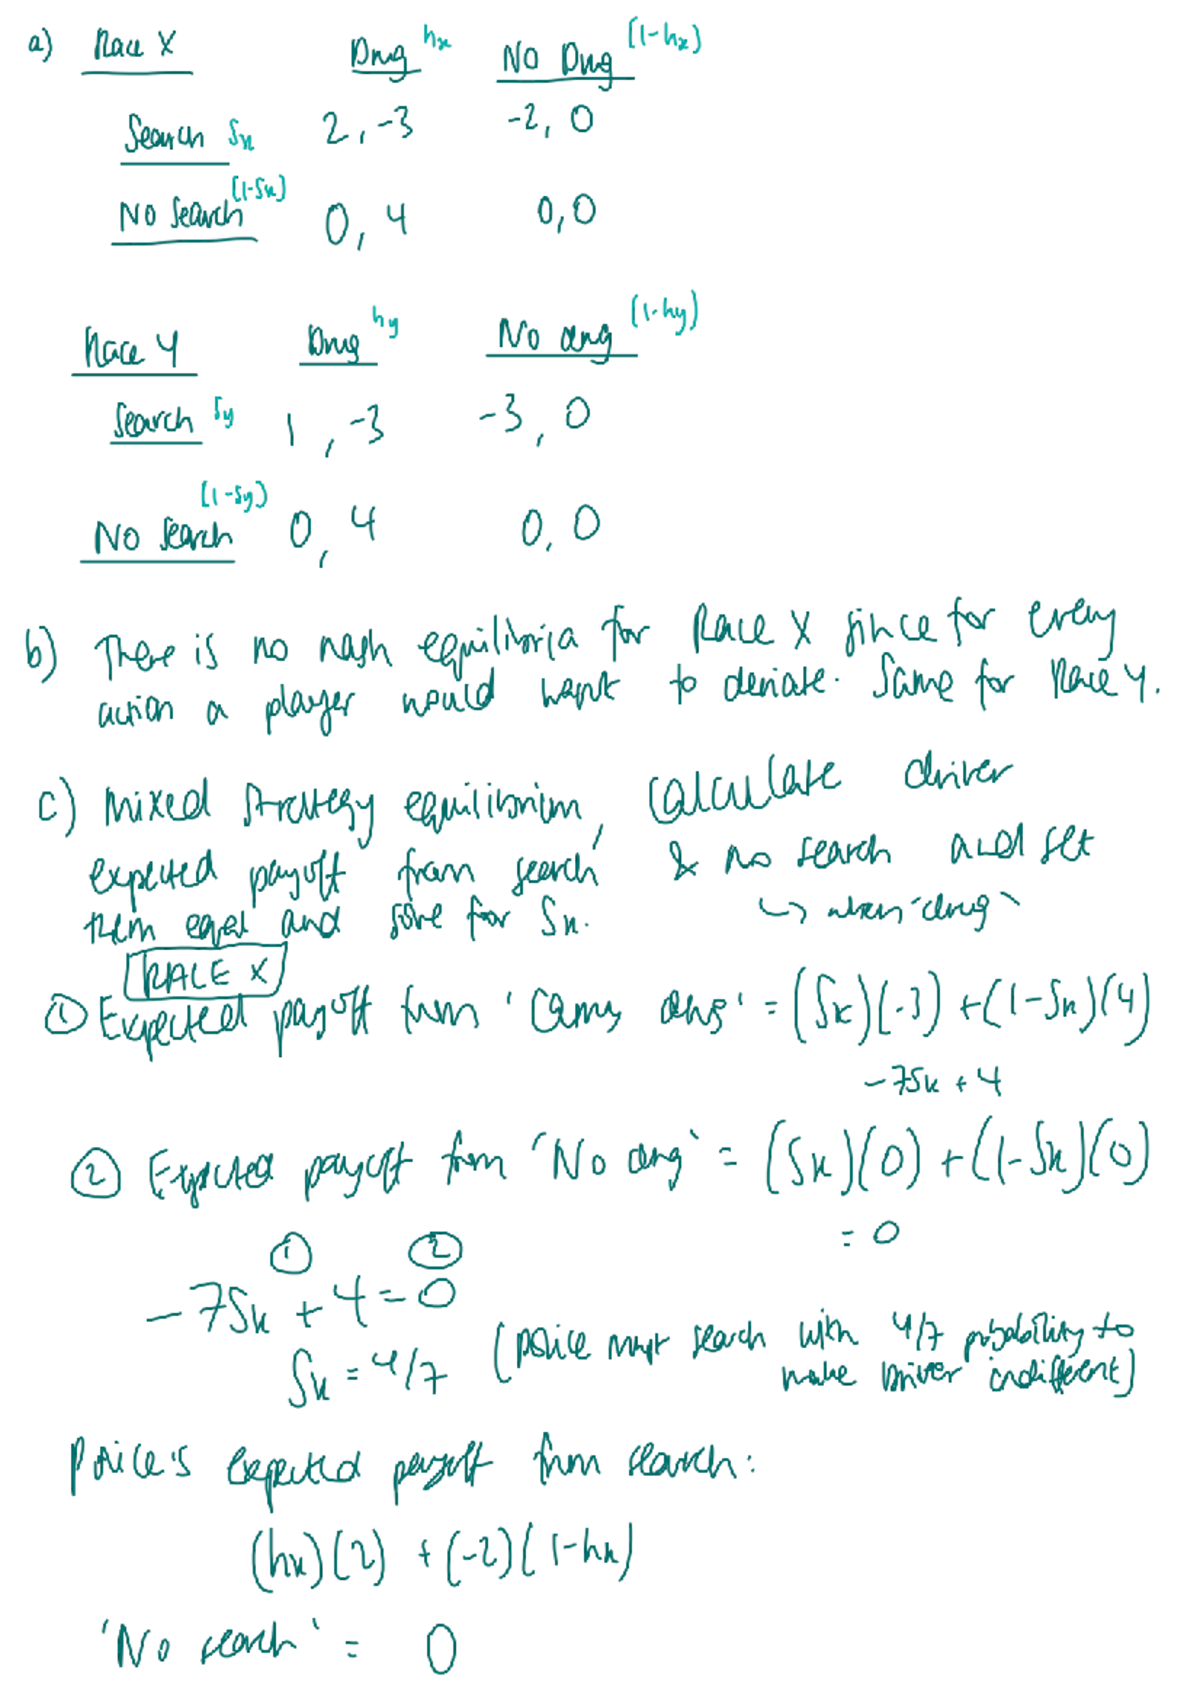 a) Race X Drug hx No Drug (1-hx)
Search Sx 2, -3 -2, 0
No Search (1-Sx) 0, 4 0,0
Race Y Drug hy No drug (1-hy)
Search Sy 1, -3 -3, 0
No Search (1-Sy) 0, 4 0, 0
b) There is no nash equilibria for Race X since for every
action a player would want to deviate. Same for Race Y.
c) Mixed Strategy equilibrium, calculate driver
expected payoff from search & no search and set
them equal and solve for Sx. ↳ when 'drug'
RACE X
① Expected payoff from 'Carry drug' = (Sx)(-3) + (1-Sx)(4)
-7Sx + 4
② Expected payoff from 'No drug' = (Sx)(0) + (1-Sx)(0)
= 0
① ②
-7Sx + 4 = 0
Sx = 4/7 (police must search with 4/7 probability to
make Driver indifferent)
Police's expected payoff from search:
(hx)(2) + (-2)(1-hx)
'No search' = 0